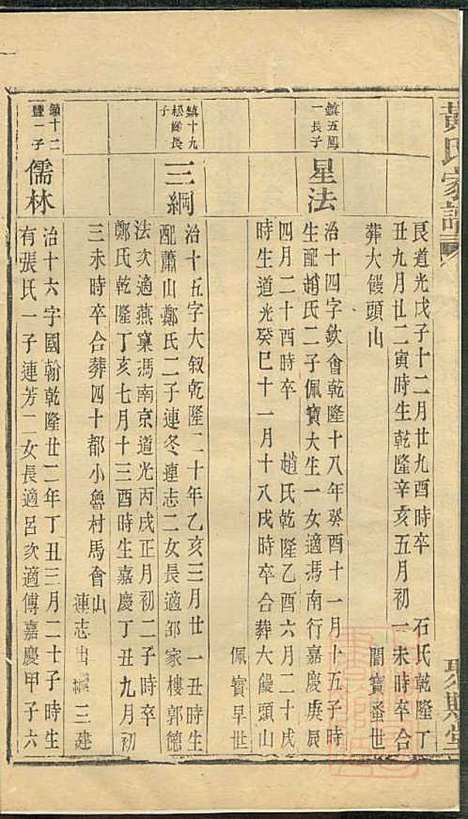 黃氏家譜
艮道光戊子十二月廿九酉時卒 石氏乾隆丁
丑九月廿二寅時生乾隆辛亥五月初一未時卒合
葬大饅頭山 閏寶蚤世
鎮五鳳
一長子
星法
治十四字欽會乾隆十八年癸酉十一月十五子時
生配趙氏二子佩寶大生一女適馮南行嘉慶庚辰
四月二十酉時卒 趙氏乾隆乙酉六月二十戌
時生道光癸巳十一月十八戌時卒合葬大饅頭山
佩寶早世
鎮十九
松齡長
子
三綱
治十五字大叙乾隆二十年乙亥三月廿一丑時生
配蕭山鄭氏二子連冬連志二女長適邹家樓郭德
法次適燕窠馮南京道光丙戌正月初二子時卒
鄭氏乾隆丁亥七月十三酉時生嘉慶丁丑九月初
三未時卒合葬四十都小魯村馬會山
連志出嗣三建
鎮十二
豐一子
儒林
治十六字國翰乾隆廿二年丁丑三月二十子時生
有張氏一子連芳二女長適呂次適傅嘉慶甲子六